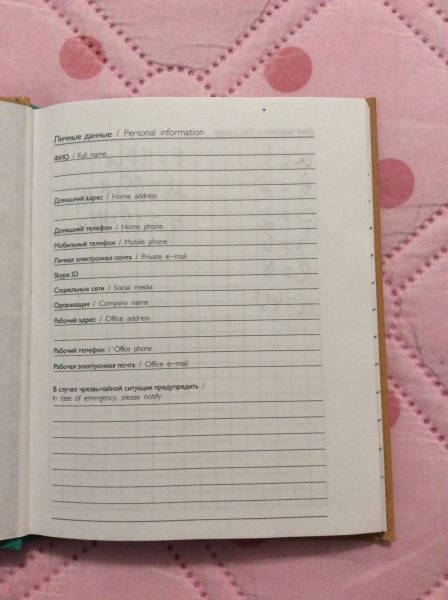 Личные данные / Personal information
ФИО / Full name
Домашний адрес / Home address
Домашний телефон / Home phone
Мобильный телефон / Mobile phone
Личная электронная почта / Private e-mail
Skype ID
Социальные сети / Social media
Организация / Company name
Рабочий адрес / Office address
Рабочий телефон / Office phone
Рабочая электронная почта / Office e-mail
В случае чрезвычайной ситуации предупредить /
In case of emergency, please notify